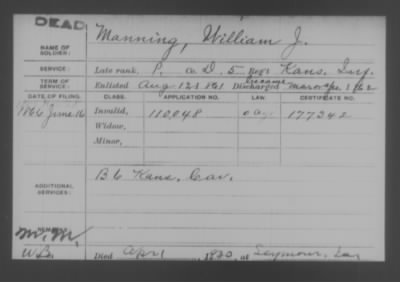 DEAD
Manning, William J.
NAME OF SOLDIER:
SERVICE: Late rank, P. Co. D, 5 Reg't Kans. Inf.
TERM OF SERVICE: Enlisted Aug 12 1861 Discharged 1862
DATE OF FILING. CLASS. APPLICATION NO. LAW. CERTIFICATE NO.
1866 June 16 Invalid, 110,048 177342
Widow,
Minor,
ADDITIONAL SERVICES: B 6 Kans. Cav.
REMARKS:
Died Apr 1, 1920, at Seymour,